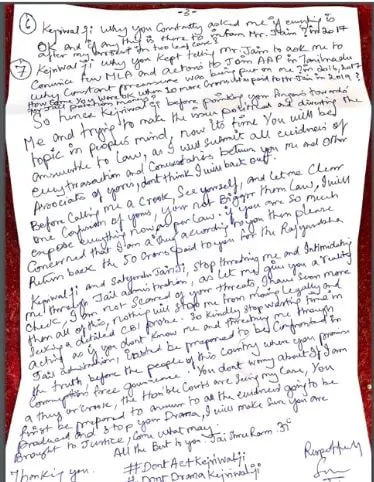 -2-
⑥ Kejriwal ji why you Constantly asked me if everything is
OK and if any there is there to inform Mr. Jain? in 2017
after my arrest in two leaf case?
⑦ Kejriwal ji why you kept telling Mr. Jain to ask me to
Convince few MLA and actors to Join AAP in Tamilnadu
Why Constant pressure was being put on me in 2016, 2017
How Come you were when 10 more Crore was paid to Mr Jain in 2019?
So hence Kejriwal ji before pointing your fingers towards
Me and trying to make the issue political and diverting the
topic in people mind, now its time you will be
answerable to Law, as I will submit all evidences of
every transaction and Conversations between you me and other
Associate of yours, dont think I will back out.
Before Calling me a Crook, see yourself, and let me Clear
one Confusion of yours, your not Bigger than Law, I will
expose everything now as per Law. if you are so much
Concerned that I am a thug according to you then please
Return back the 50 Crores paid to you for the Rajyasabha
Kejriwal ji and Satyendar Jain ji, stop threatening me and Intimidating
me through Jail administration, as let me give you a reality
Check, I am not Scared of your threats, I have seen more
than all of this, nothing will stop me from moving legally and
Seeking a detailed CBI probe. So kindly stop wasting time in
acting as if you dont know me and threatening me through
Jail administration, be prepared to be Confronted to
the truth, before the people of this Country whom you promise
Corruption free governance. You dont worry about if I am
a thug or Crook, the Honble Courts are seeing my Case, You
first be prepared to answer to all the evidences going to be
produced and stop your Drama, I will make sure you are
Brought to Justice, Come what may.
All the Best to you Jai Shree Ram
Thanking you. Respectfully
#DontActKejriwalji
#DontDramaKejriwalji